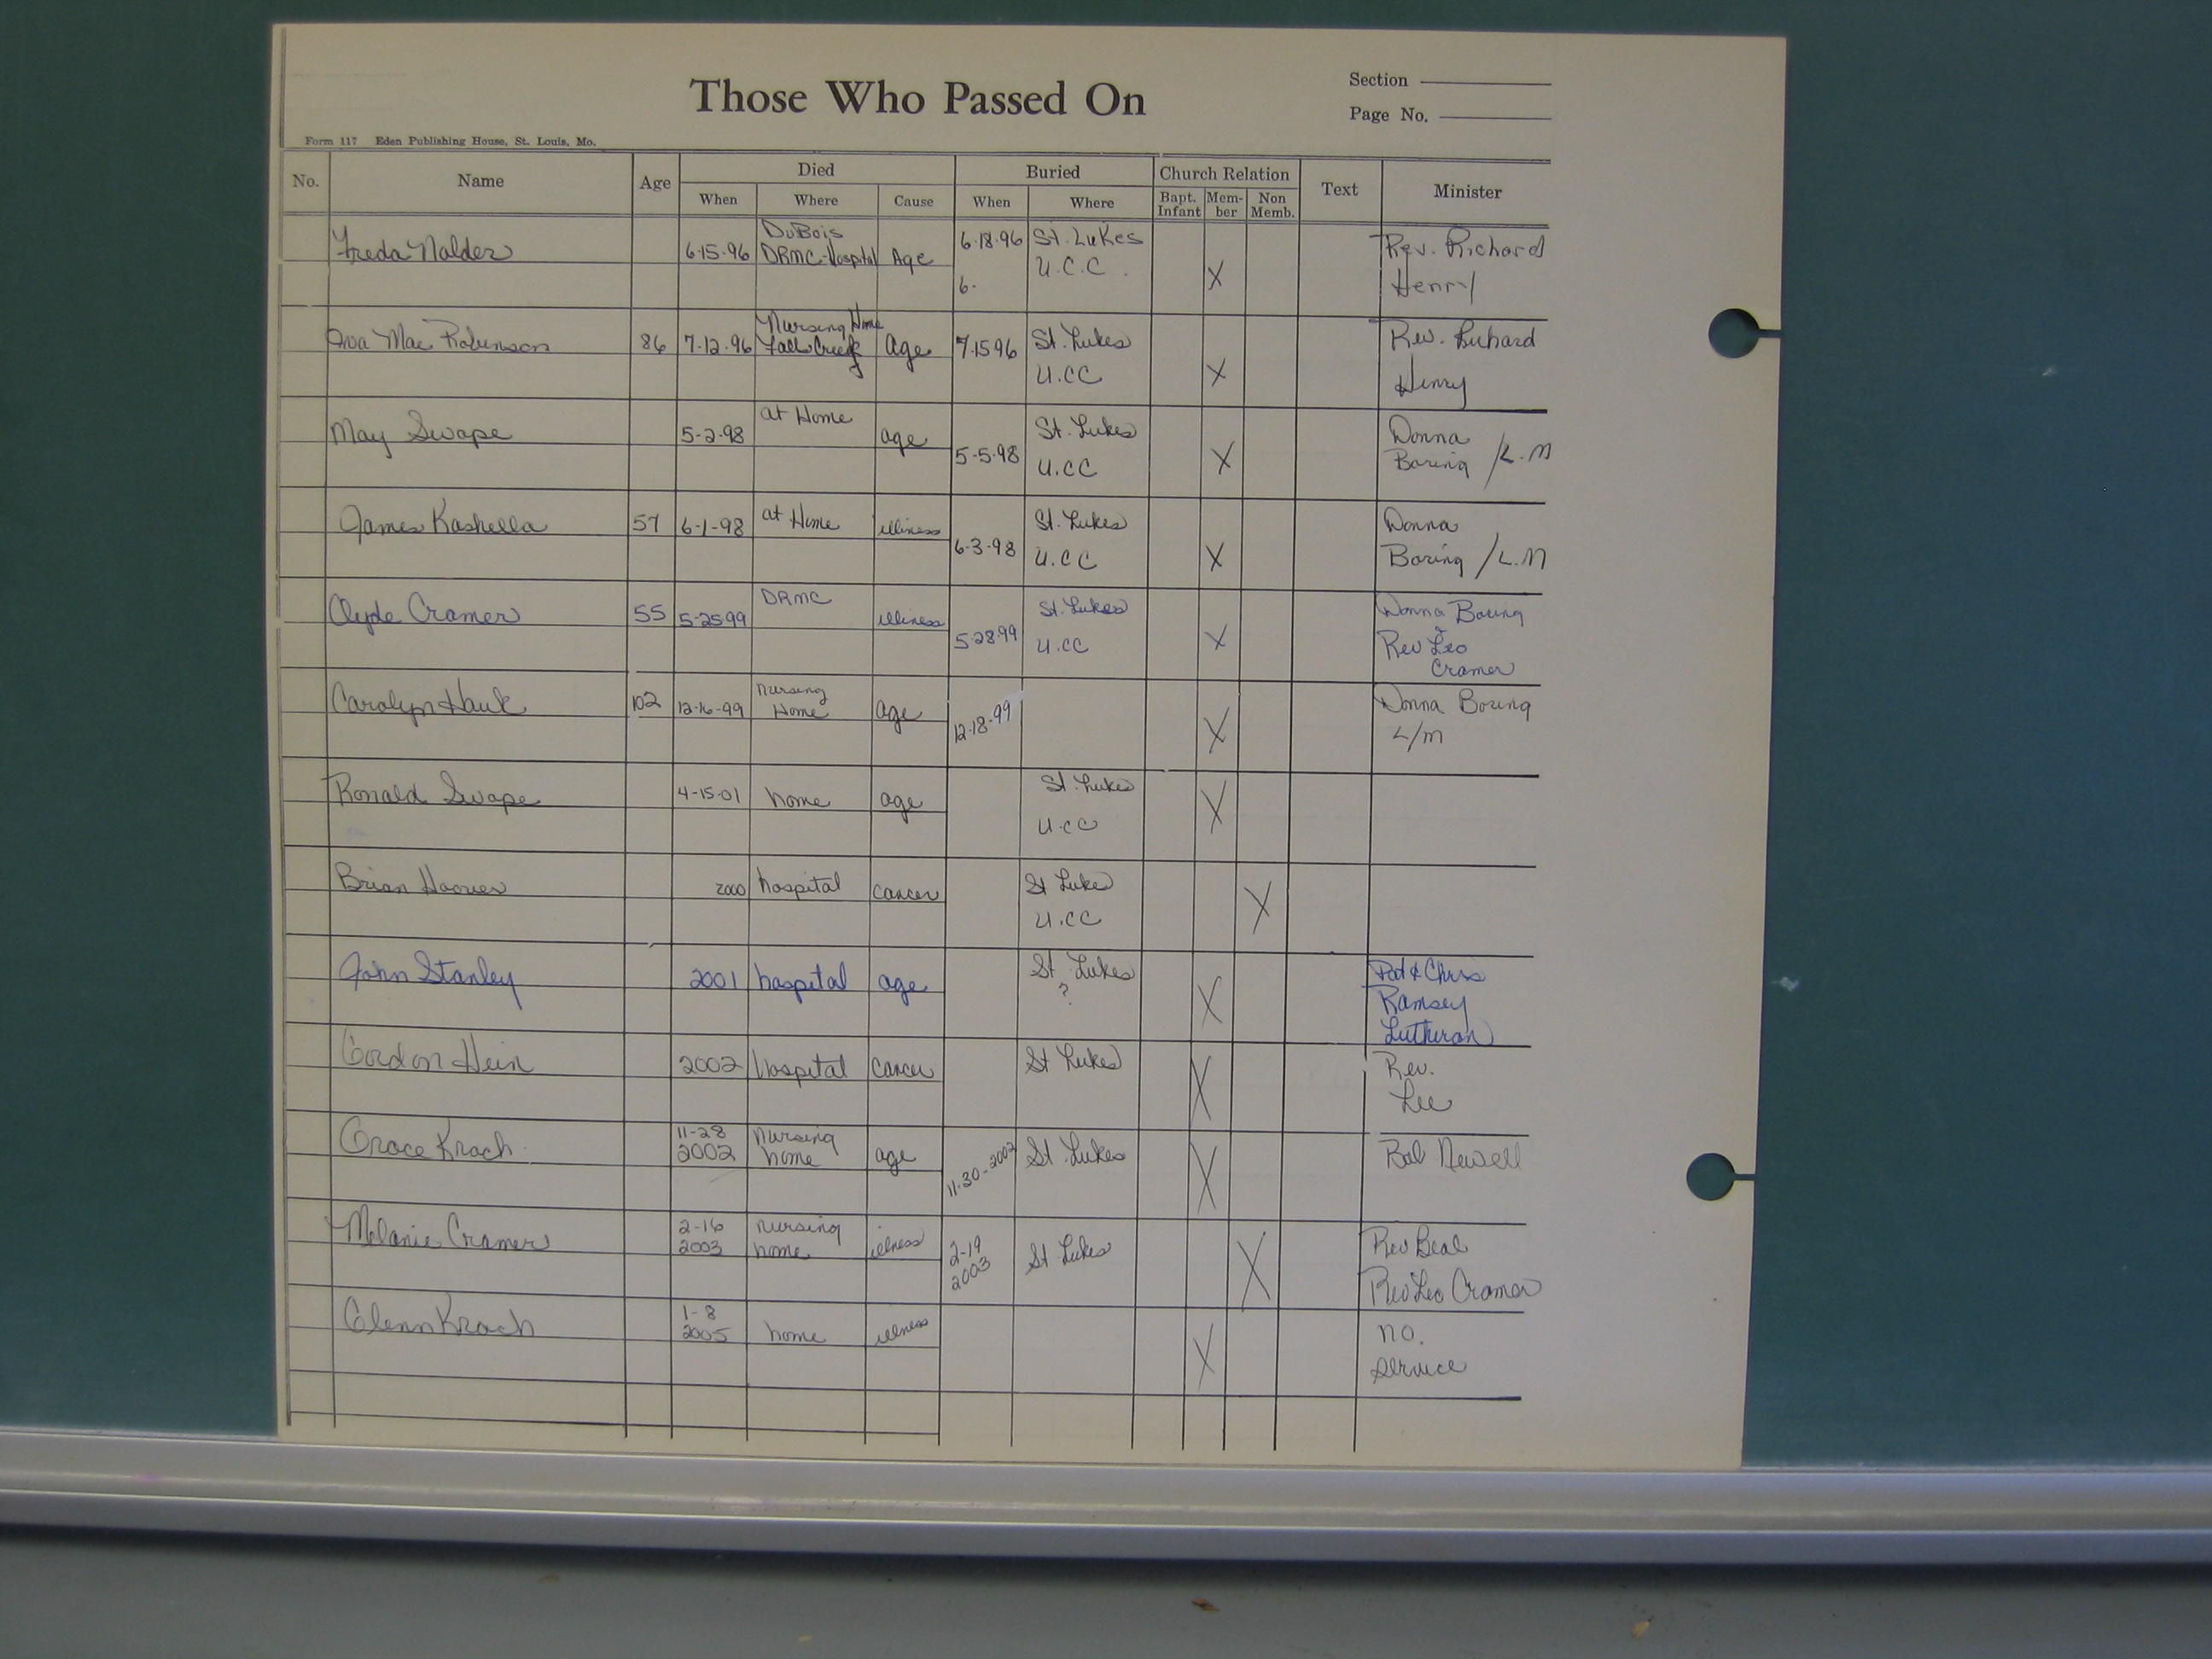 Those Who Passed On
Section
Page No.
Form 117 Eden Publishing House, St. Louis, Mo.
No. Name Age Died Buried Church Relation Text Minister
When Where Cause When Where Bapt. Infant Mem-ber Non Memb.
Freda Nalder 6-15-96 DuBois DRMC-Hospital Age 6-18-96 St. Lukes X Rev. Richard
6- U.C.C. Henry
Iva Mae Robinson 86 7-12-96 Nursing Home Falls Creek age 7-15-96 St. Lukes X Rev. Richard
U.CC Henry
May Swope 5-2-98 at Home age 5-5-98 St. Lukes X Donna
U.CC Boring /L.M
James Kashella 57 6-1-98 at Home illiness 6-3-98 St. Lukes X Donna
U.CC Boring /L.M
Clyde Cramer 55 5-25-99 DRMC illiness 5-28-99 St. Lukes X Donna Boring
U.CC & Rev Leo
Cramer
Carolyn Hauk 102 12-16-99 nursing Home age 12-18-99 X Donna Boring
L/M
Ronald Swope 4-15-01 home age St. Lukes X
U.CC
Brian Hoover 2000 hospital cancer St Luke X
U.CC
John Stanley 2001 hospital age St. Lukes X Pat & Chris
? Ramsey
Lutheran
Gordon Hein 2002 Hospital Cancer St Lukes X Rev.
Lee
Grace Krach 11-28 2002 nursing home age 11-30-2002 St. Lukes X Bob Newell
Melanie Cramer 2-16 2003 nursing home illness 2-19 2003 St Lukes X Rev Beal
Rev Leo Cramer
Glenn Krach 1-8 2005 home illness X no.
service